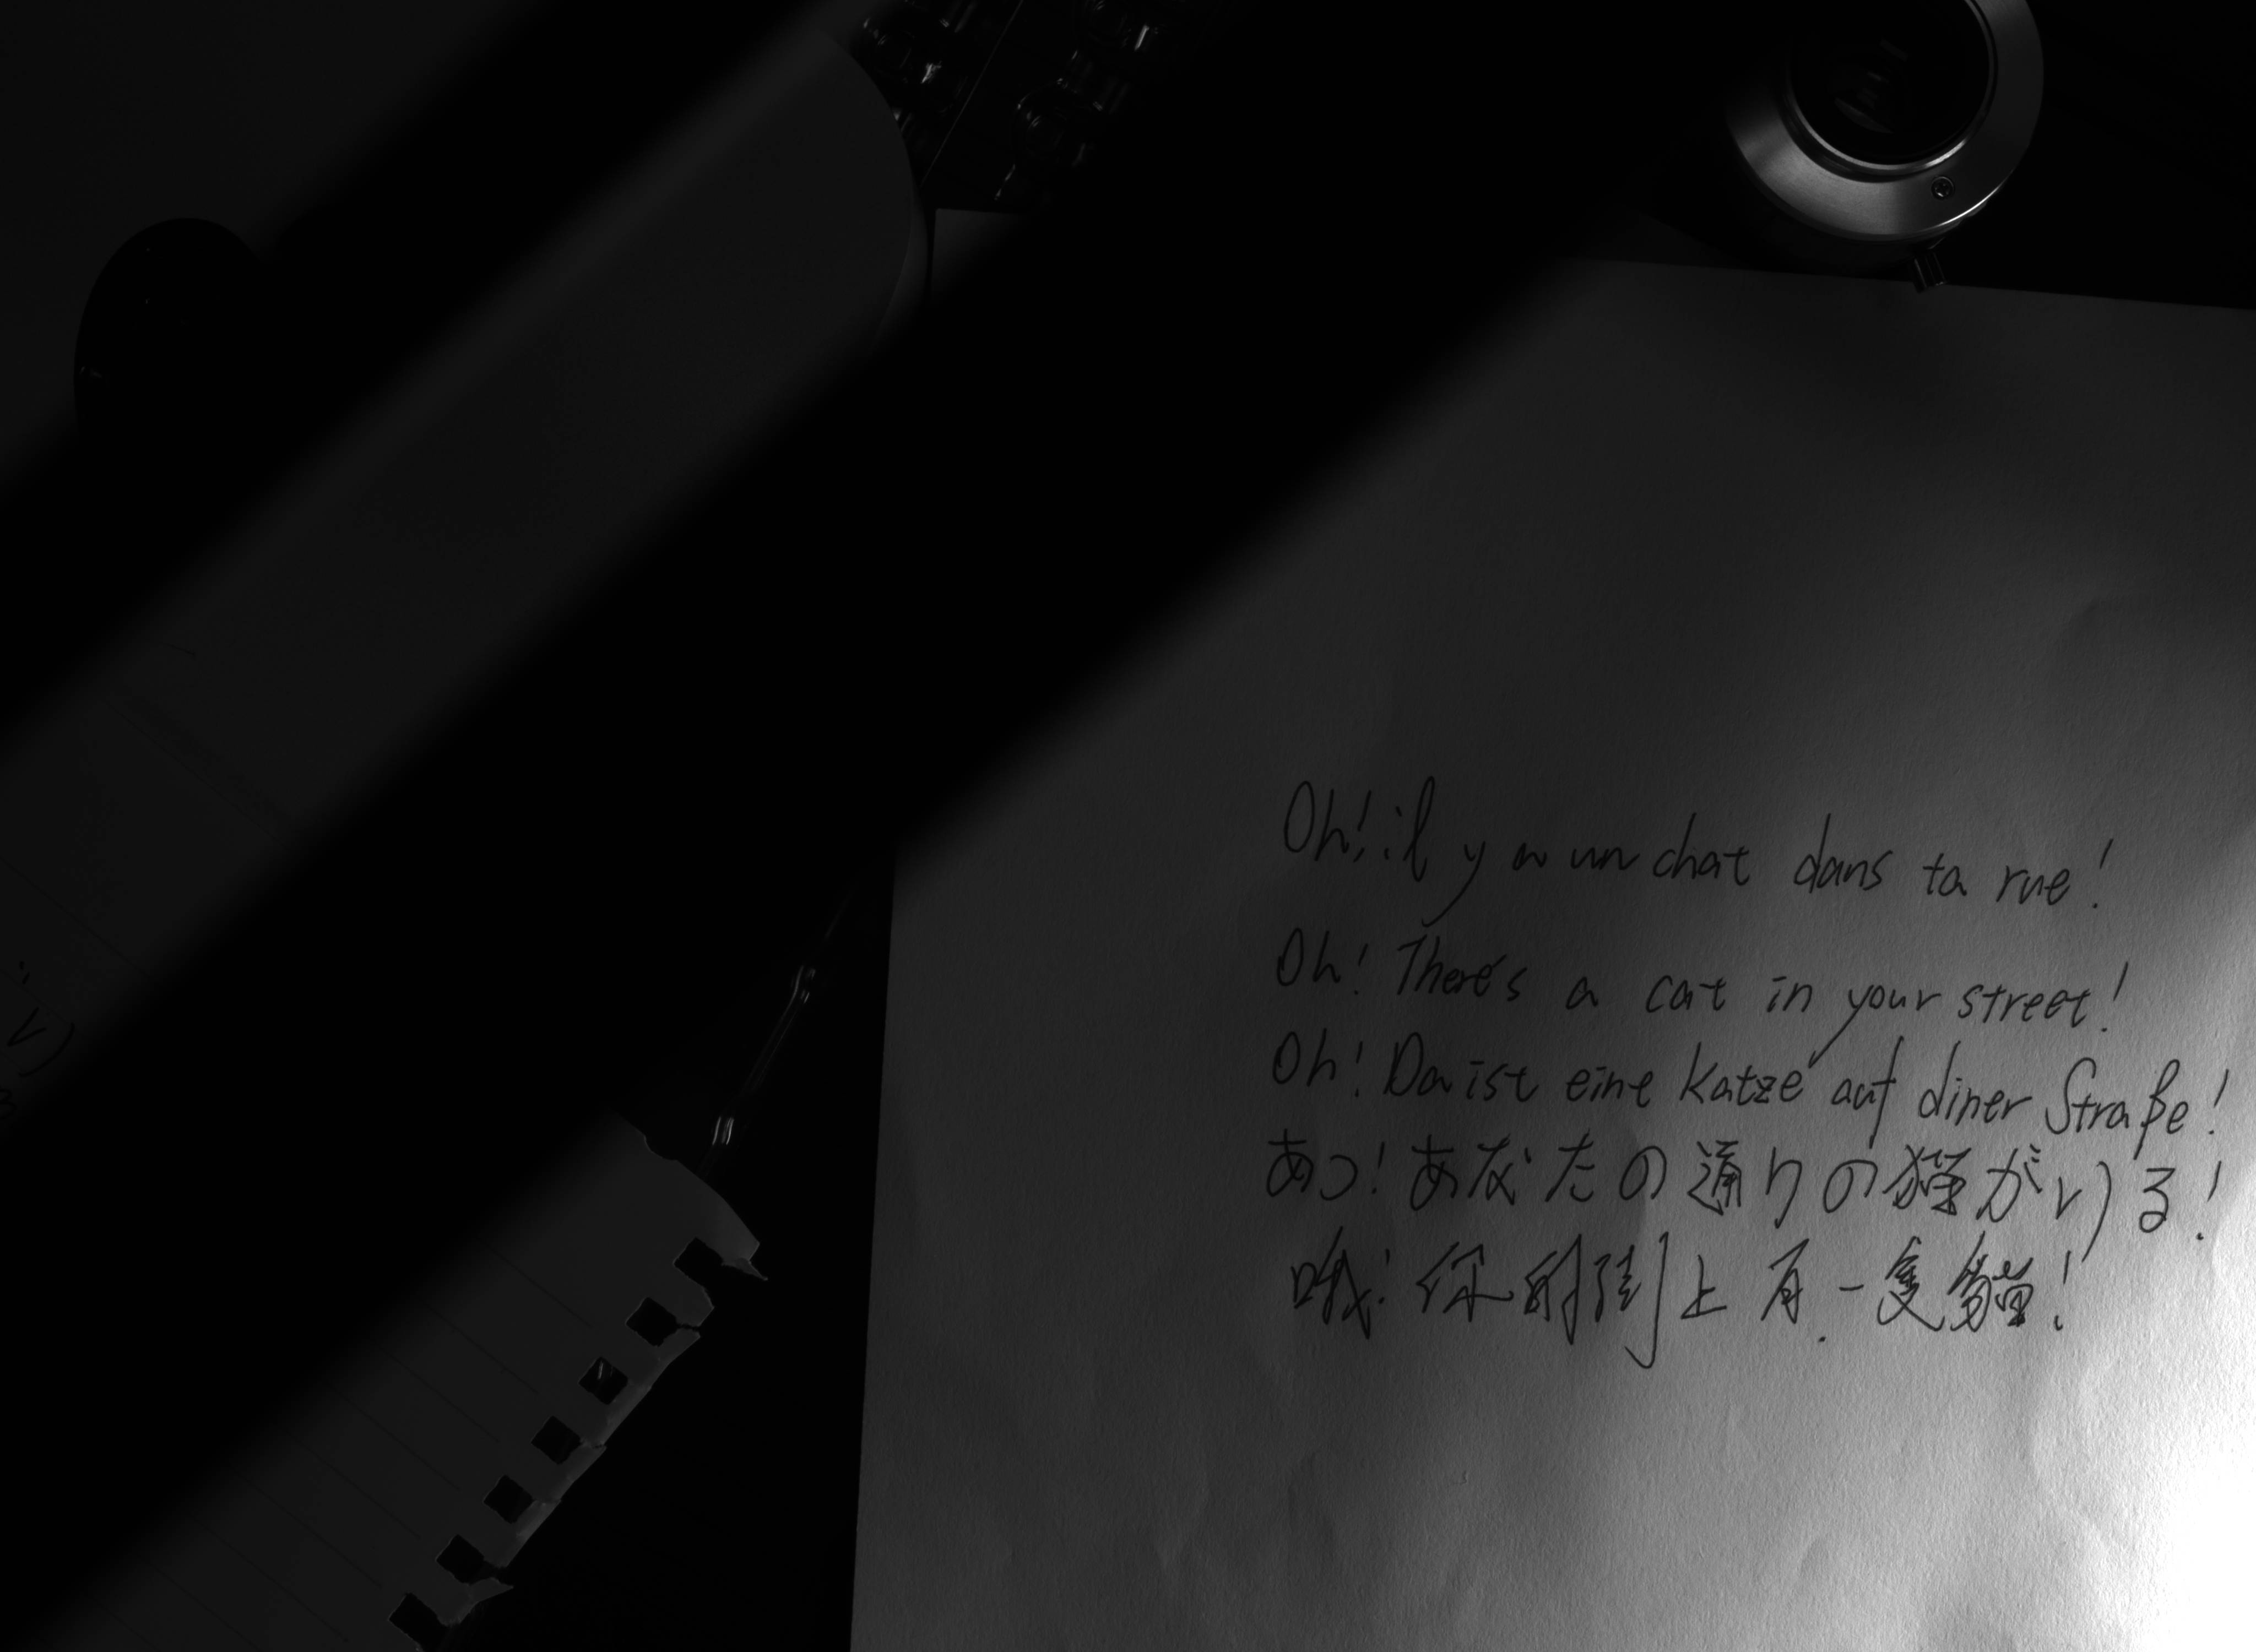 Oh! il y a un chat dans ta rue!
Oh! There's a cat in your street!
Oh! Da ist eine Katze auf diner Straße!
あっ!あなたの通りの猫がいる!
哦!你的街上有一隻貓!